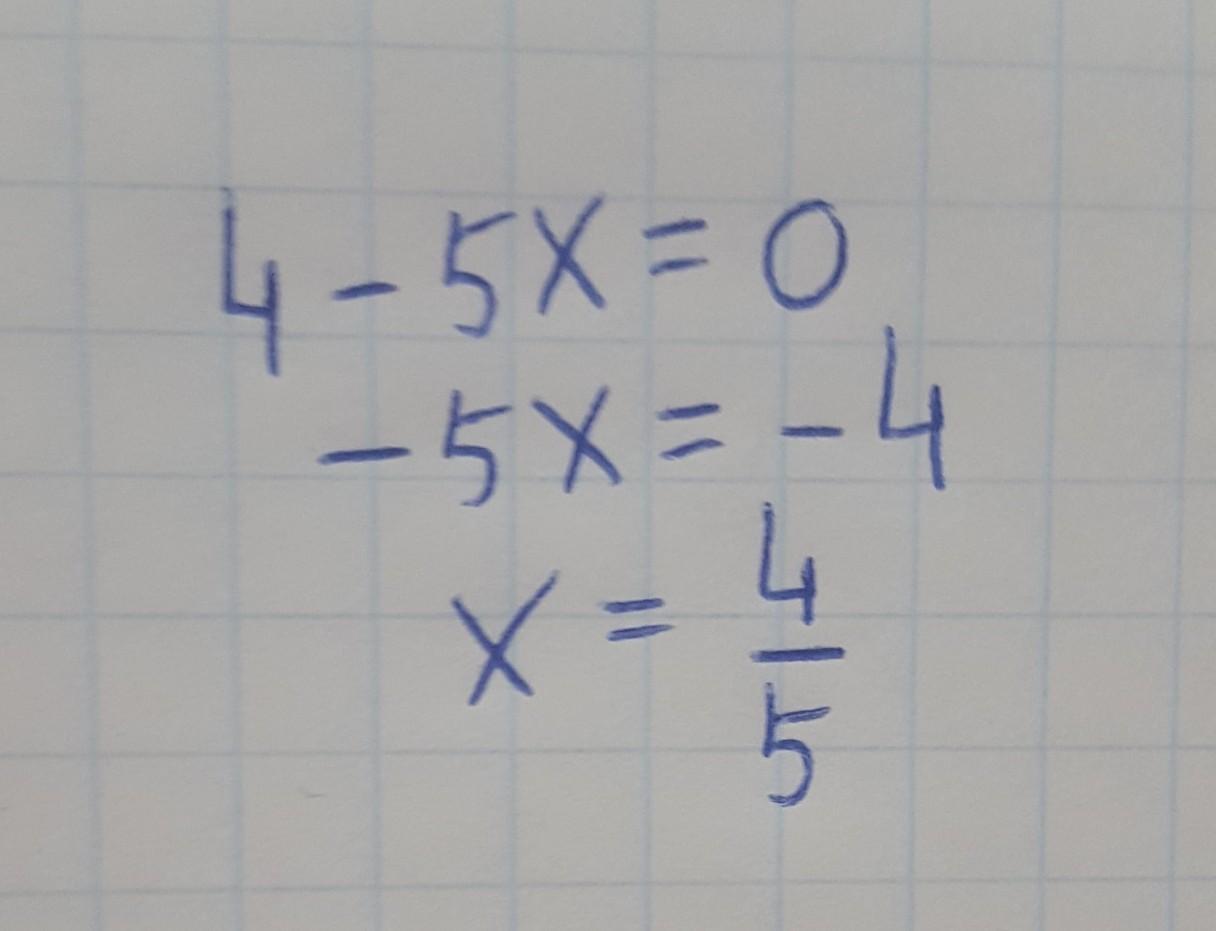 4 - 5x = 0
- 5x = - 4
x = 4/5